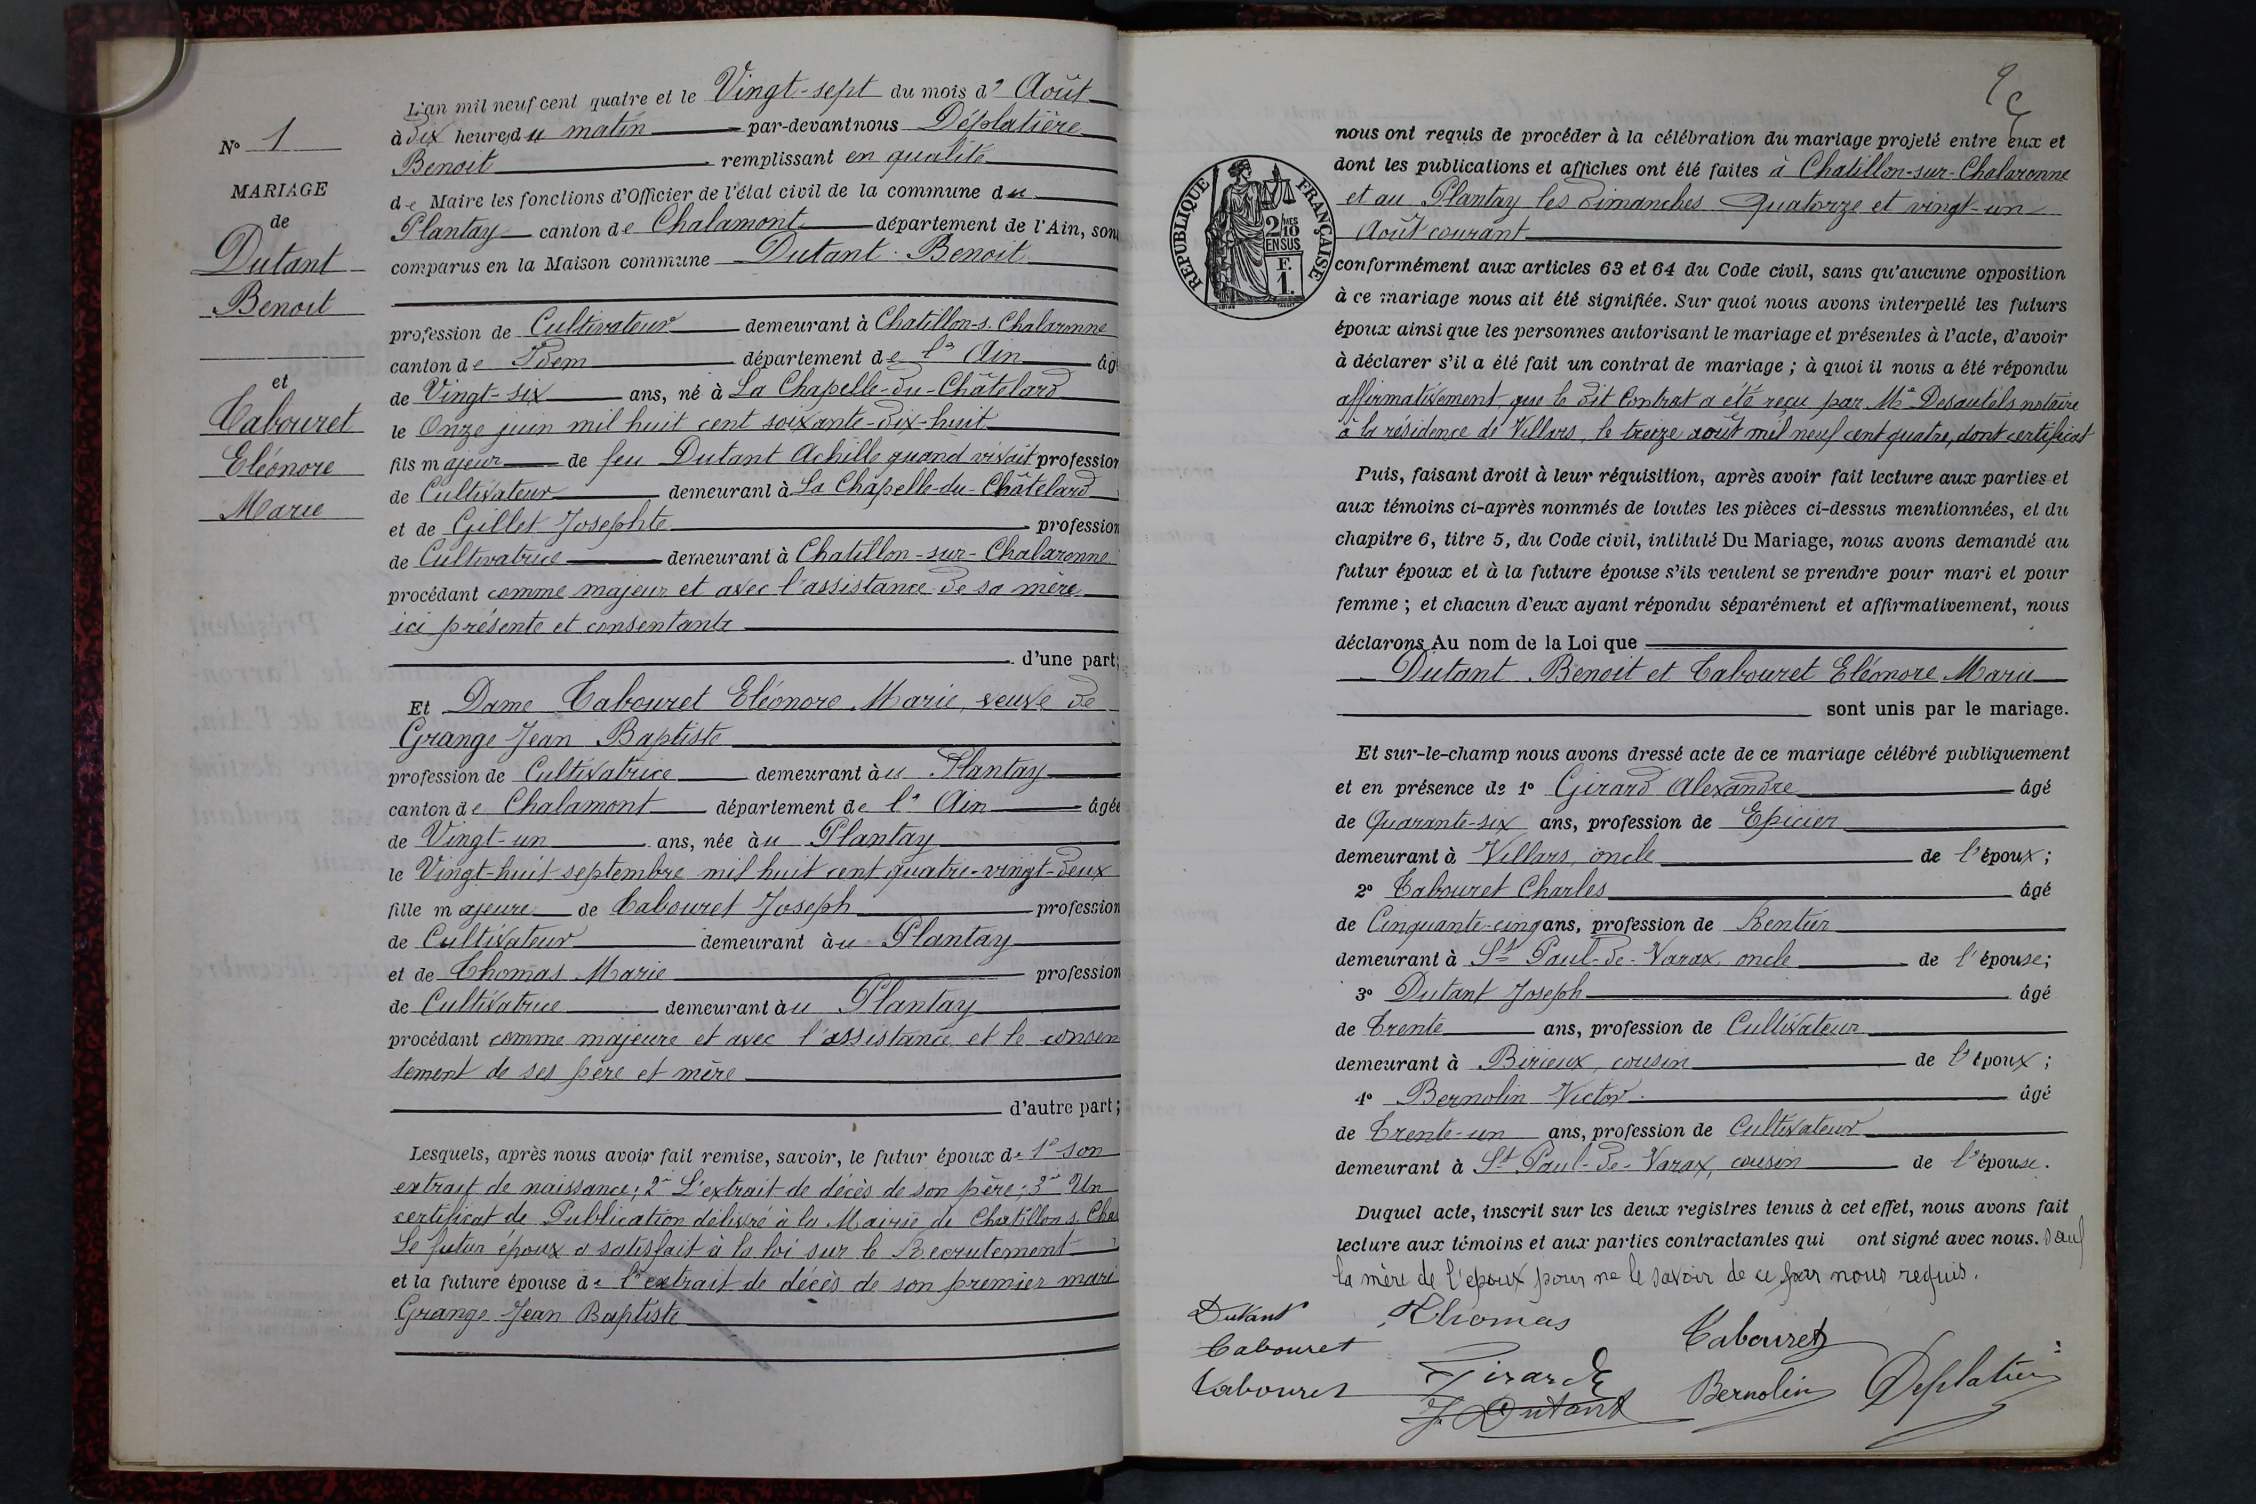 N° 1
MARIAGE
de
Dutant
Benoit
et
Cabouret
Eléonore
Marie
L'an mil neuf cent quatre et le Vingt-sept du mois d' Août
à Dix heures du matin par-devant nous Déplatière
Benoit remplissant en qualité
de Maire les fonctions d'Officier de l'état civil de la commune du
Plantay canton de Chalamont département de l'Ain, son
comparus en la Maison commune Dutant Benoit
profession de Cultivateur demeurant à Chatillon-s. Chalaronne
canton de Idem département de l' Ain âg
de Vingt-six ans, né à La Chapelle-du-Châtelard
le Onze juin mil huit cent soixante-dix-huit
fils majeur de feu Dutant Achille quand vivait profession
de Cultivateur demeurant à La Chapelle-du-Châtelard
et de Gillet Josephte profession
de Cultivatrice demeurant à Chatillon-sur-Chalaronne
procédant comme majeur et avec l'assistance de sa mère
ici présente et consentante
d'une part;
Et Dame Cabouret Eléonore Marie, veuve de
Grange Jean Baptiste
profession de Cultivatrice demeurant àu Plantay
canton de Chalamont département de l' Ain âgée
de Vingt-un ans, née àu Plantay
le Vingt-huit septembre mil huit cent quatre-vingt-deux
fille majeure de Cabouret Joseph profession
de Cultivateur demeurant àu Plantay
et de Thomas Marie profession
de Cultivatrice demeurant àu Plantay
procédant comme majeure et avec l'assistance et le consen
tement de ses père et mère
d'autre part;
Lesquels, après nous avoir fait remise, savoir, le futur époux de 1° son
extrait de naissance; 2° L'extrait de décès de son père; 3° Un
certificat de Publication délivré à la Mairie de Chatillon s. Cha
Le futur époux a satisfait à la loi sur le Recrutement
et la future épouse de l'extrait de décès de son premier mari
Grange Jean Baptiste
RÉPUBLIQUE FRANÇAISE
2/10 MES
EN SUS
F.
1.
nous ont requis de procéder à la célébration du mariage projeté entre eux et
dont les publications et affiches ont été faites à Chatillon-sur-Chalaronne
et au Plantay les dimanches Quatorze et vingt-un
Août courant
conformément aux articles 63 et 64 du Code civil, sans qu'aucune opposition
à ce mariage nous ait été signifiée. Sur quoi nous avons interpellé les futurs
époux ainsi que les personnes autorisant le mariage et présentes à l'acte, d'avoir
à déclarer s'il a été fait un contrat de mariage ; à quoi il nous a été répondu
affirmativement, que le dit Contrat a été reçu par Me Desautels notaire
à la résidence de Villars, le treize août mil neuf cent quatre, dont certificat
Puis, faisant droit à leur réquisition, après avoir fait lecture aux parties et
aux témoins ci-après nommés de toutes les pièces ci-dessus mentionnées, et du
chapitre 6, titre 5, du Code civil, intitulé Du Mariage, nous avons demandé au
futur époux et à la future épouse s'ils veulent se prendre pour mari et pour
femme ; et chacun d'eux ayant répondu séparément et affirmativement, nous
déclarons Au nom de la Loi que
Dutant Benoit et Cabouret Eléonore Marie
sont unis par le mariage.
Et sur-le-champ nous avons dressé acte de ce mariage célébré publiquement
et en présence de 1° Girard Alexandre âgé
de Quarante-six ans, profession de Epicier
demeurant à Villars, oncle de l'époux ;
2° Cabouret Charles âgé
de Cinquante-cinq ans, profession de Rentier
demeurant à St Paul-de-Varax, oncle de l'épouse;
3° Dutant Joseph âgé
de Trente ans, profession de Cultivateur
demeurant à Birieux, cousin de l'époux ;
4° Bernolin Victor âgé
de Trente-un ans, profession de Cultivateur
demeurant à St Paul-de-Varax, cousin de l'épouse.
Duquel acte, inscrit sur les deux registres tenus à cet effet, nous avons fait
lecture aux témoins et aux parties contractantes qui ont signé avec nous. Sauf
la mère de l'epoux pour ne le savoir de ce par nous requis.
Dutant Thomas Cabouret
Cabouret Girard Bernolin Deplatière
Cabouret J. Dutant